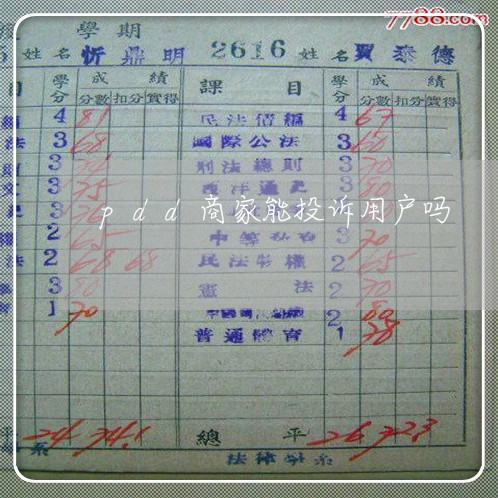 7788.com
學期
姓名 忻鼎明 2616 姓名 賈泰德
目 學分 成績 課目 學分 成績
分數 扣分 實得 分數 扣分 實得
4 81 民法債編 4 67
法 3 68 國際公法 3 60
3 刑法總則 3 70
3 75 西洋通史 3 80
pdd商家能投訴用户吗
2 65 3 70
法 2 68 68 民法物權 2 65
3 80 憲法 2 70
1 70 2 80
普通體育 1 78
平 24 74.1 總平 26 72.3
系 法律學系